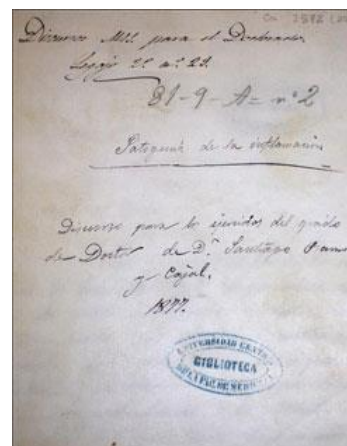 Discurso MS. para el Doctorado.
Legajo 2º nº 23.
81-9-A= nº 2
Patogenia de la inflamación
Discurso para los ejercicios del grado
de Doctor de Dn. Santiago Ramon
y Cajal.
1877.
UNIVERSIDAD CENTRAL
BIBLIOTECA
DE LA FAC. DE MEDICINA